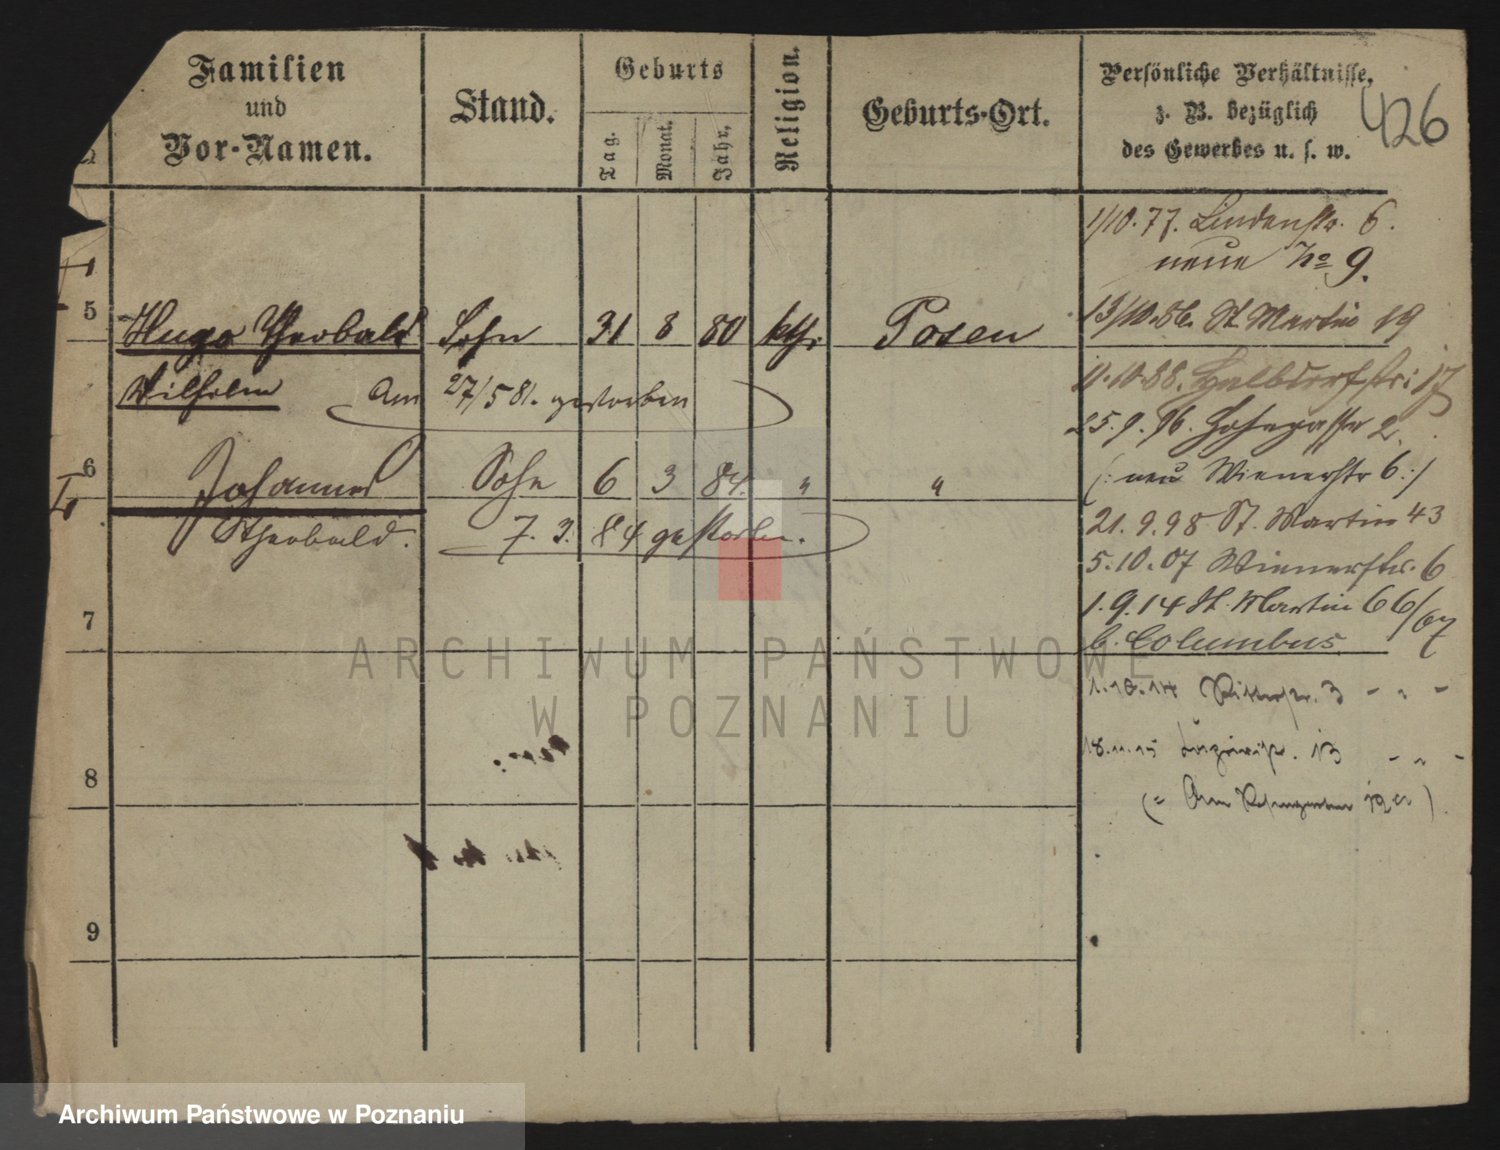 Familien
und
Vor-Namen.
Stand.
Geburts
Tag.
Monat.
Jahr.
Religion.
Geburts-Ort.
Persönliche Verhältnisse,
z. B. bezüglich
des Gewerbes u. s. w.
426
1/10.77. Lindenstr. 6.
neue No 9.
5 Hugo Theobald Sohn 31 8 80 kth. Posen
13/10.86. St Martin 19
Wilhelm Am 27/5 81. gestorben
11.10.88. Halbdorfstr: 17
25.9.96. 2.
6 Johannes Sohn 6 3 84. " "
(: neu Wienerstr 6:)
Theobald. 7. 3. 84 gestorben.
21.9.98 St. Martin 43
5.10.07 Wienerstr. 6
1.9.14 St. Martin 66/67
7
b. Columbus
1.10.14 Ritterstr. 3 - " -
18.11.15 13 - " -
8
(= Am
9
ARCHIWUM PAŃSTWOWE
W POZNANIU
Archiwum Państwowe w Poznaniu